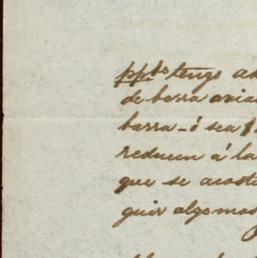 ppdo tengo a
de barra
barra - ó sea
reducen á la
que se acost
guir algo mas